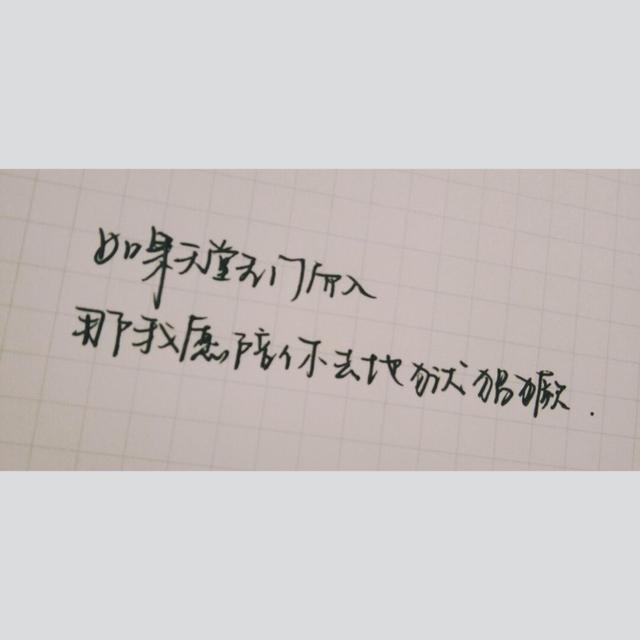 如果天堂无门而入
那我愿陪你去地狱猖獗.